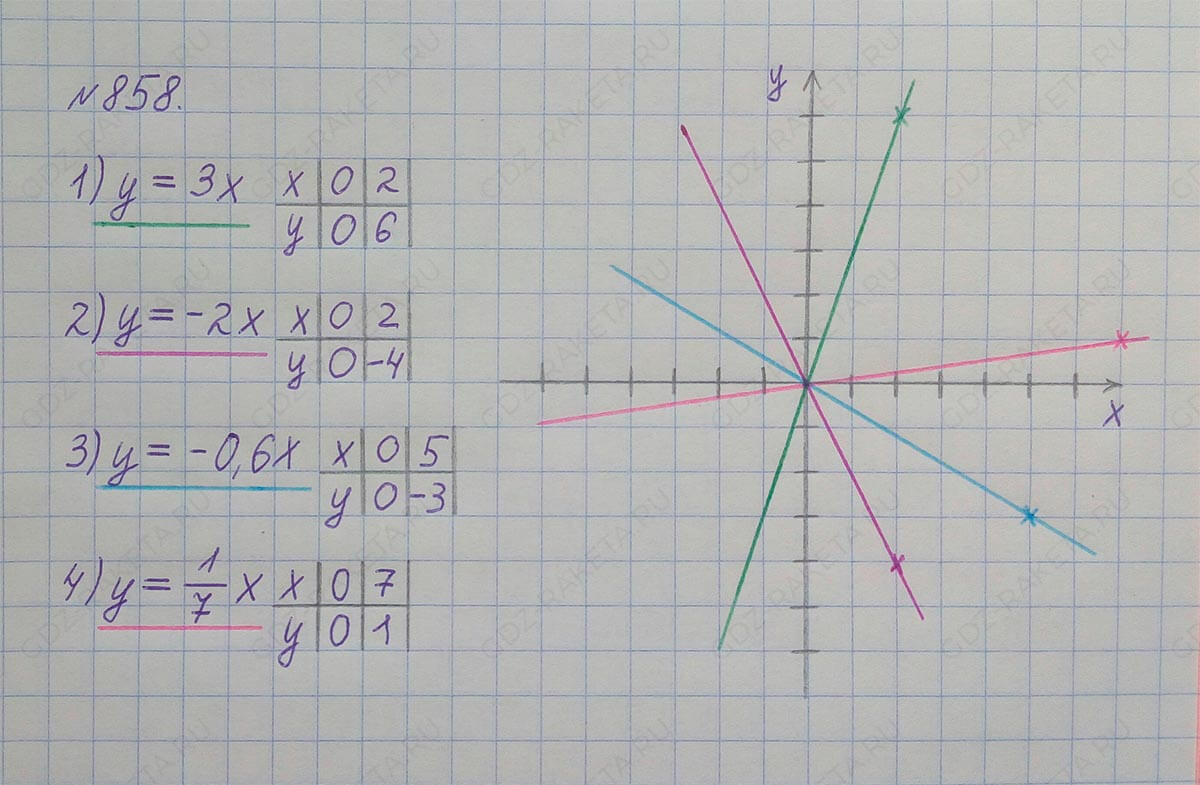 №858.
1) y = 3x
x 0 2
y 0 6
2) y = -2x
x 0 2
y 0 -4
3) y = -0,6x
x 0 5
y 0 -3
4) y = 1/7 x
x 0 7
y 0 1
y
x
GDZ-RAKETA.RU